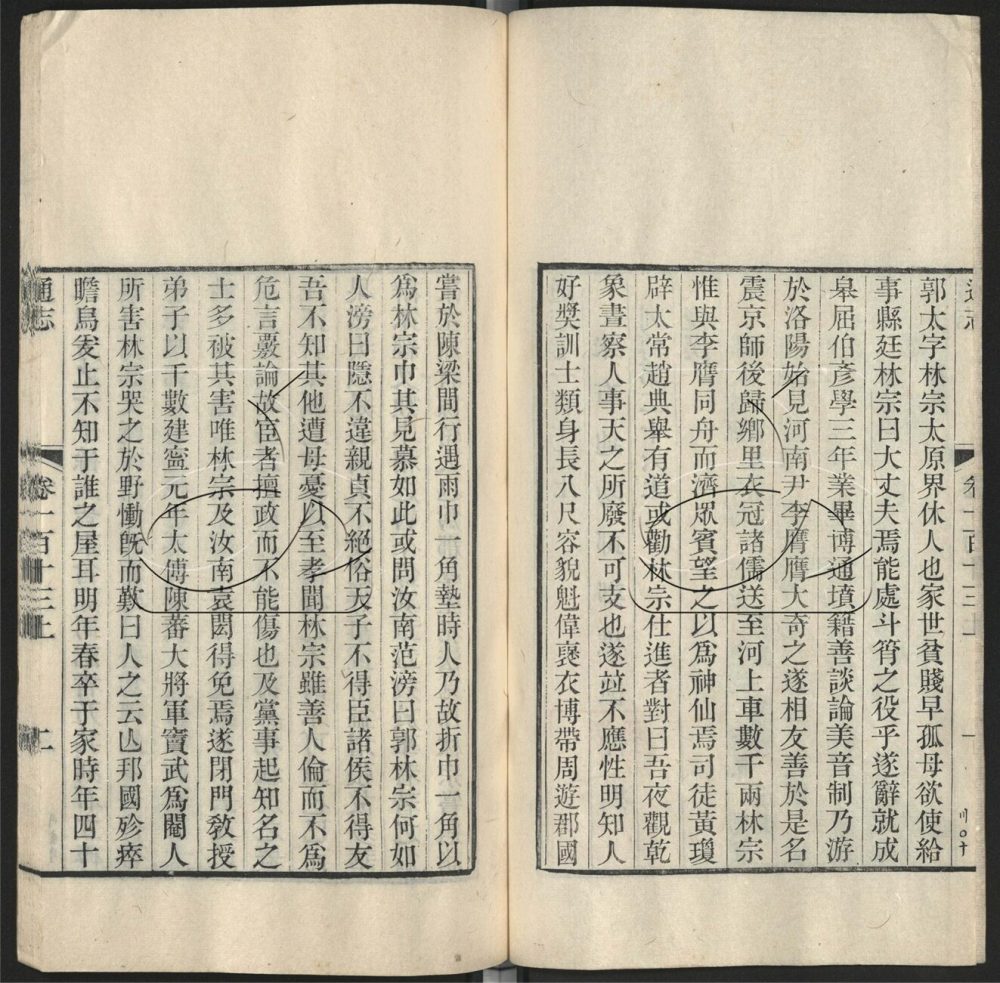 郭太字林宗太原界休人也家世貧賤早孤母欲使給
事縣廷林宗曰大丈夫焉能處斗筲之役乎遂辭就成
皋屈伯彥學三年業畢博通墳籍善談論美音制乃游
於洛陽始見河南尹李膺膺大奇之遂相友善於是名
震京師後歸鄉里衣冠諸儒送至河上車數千兩林宗
惟與李膺同舟而濟眾賓望之以爲神仙焉司徒黃瓊
辟太常趙典舉有道或勸林宗仕進者對曰吾夜觀乾
象晝察人事天之所廢不可支也遂竝不應性明知人
好獎訓士類身長八尺容貌魁偉襃衣博帶周遊郡國
嘗於陳梁間行遇雨巾一角墊時人乃故折巾一角以
爲林宗巾其見慕如此或問汝南范滂曰郭林宗何如
人滂曰隱不違親貞不絕俗天子不得臣諸侯不得友
吾不知其他遭母憂以至孝聞林宗雖善人倫而不爲
危言覈論故宦者擅政而不能傷也及黨事起知名之
士多破其害唯林宗及汝南袁閎得免焉遂閉門敎授
弟子以千數建寧元年太傅陳蕃大將軍竇武爲閹人
所害林宗哭之於野慟旣而歎曰人之云亾邦國殄瘁
瞻烏爰止不知于誰之屋耳明年春卒于家時年四十
通志
卷一百十三上
二